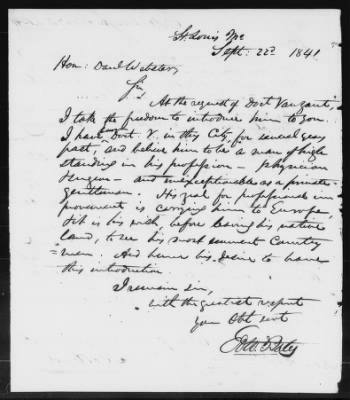 St. Louis Mo
Sept. 22d 1841
Hon: Danl Webster,
Sir,
At the request of Doct Vanzant,
I take the freedom to introduce him to you.
I have Doct. V. in this City for several years
past, and believe him to be a man of high
standing in his profession - physician
Surgeon - and unexceptionable as a private
gentleman. His zeal for professional im
provement is carrying him to Europe,
It is his wish before leaving his native
land, to see his most eminent Country
=men. And hence his desire to have
this introduction.
I remain sir,
with the greatest respect
Your Obt servt